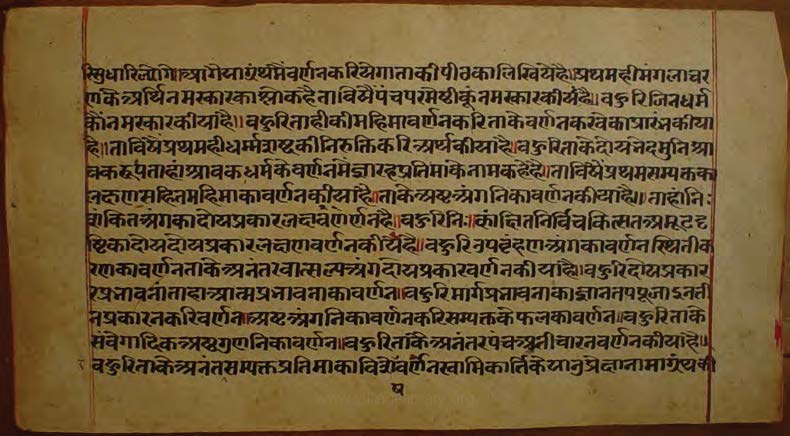 रिसुधारिलीगे॥आगेयाग्रंथमैवर्णनकरियेगाताकीपीठकालिखियेहै॥प्रथमहीमंगलाचर
णकेअर्थिनमस्कारकाश्लोकहैताविषैपंचपरमेष्ठीकूंनमस्कारकीयहै॥बहुरिजिनधर्म
कौनमस्कारकीयाहै॥बहुरिताहीकीमहिमावर्णनकरिताकेवर्णनकरवेकाप्रारंभकीया
है॥ताविषैप्रथमहीधर्म्मशब्दकीनिरुक्तिकरिअर्थकीयाहै॥बहुरिताकेदोयभेदमुनिश्रा
वकरूपताहांश्रावकधर्मकेवर्णनमैग्यारहप्रतिमाकेनामकहेहै॥ताविषैप्रथमसम्यक्तका
लक्षणसहितमहिमाकावर्णनकीयाहै॥ताकेअष्टअंगनिकावर्णनकीयाहै॥ताहांनिः
शंकितअंगकादोयप्रकारलक्षवर्णनहै॥बहुरिनिःकांक्षितनिर्विचकित्सतअमूढदृ
ष्टिकादोयदोयप्रकारलक्षणवर्णनकीयेहै॥बहुरिउपबृंहणअंगकावर्णनस्थितीक
रणकावर्णनताकेअनंतरवात्सल्यअंगदोयप्रकारवर्णनकीयाहै॥बहुरिदोयप्रकार
रप्रभावनांताहांआत्मप्रभावनाकावर्णन॥बहुरिमार्गप्रभावनाकाज्ञानतपपूजाइनती
नप्रकारनकरिवर्णन॥अष्टअंगनिकावर्णनकरिसम्यक्तकेफलकावर्णन॥बहुरिताके
संवेगादिकअष्टगुणनिकावर्णन॥बहुरिताकेअनंतरपंचअतीचारनवर्णनकीयाहै॥
बहुरिताकेअनंतसम्यक्तप्रतिमाकाविशेषवर्णनस्वामिकार्तिकेयानुप्रेक्षानामाग्रंथकी
ष